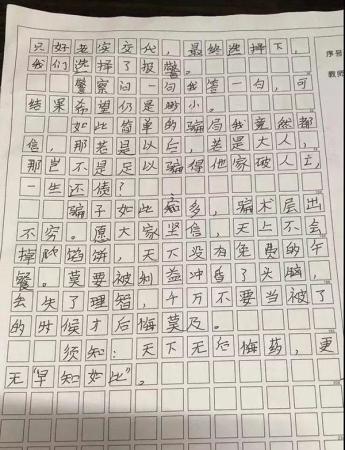 只好老实交代，最终选择下，
我们选择了报警。
警察问一句我答一句，可
结果希望仍是渺小。
如此简单的骗局我竟然都
信，那若是以后，若是大人，
那岂不是足以骗得他家破人亡，
一生还债？
骗子如此多，骗术层出
不穷。愿大家坚信，天上不会
掉陷饼，天下没有免费的午
餐。莫要被利益冲昏了头脑，
去失了理智，千万不要当被了
的时候才后悔莫及。
须知：天下无后悔药，更
无“早知如此”。
序号
教师